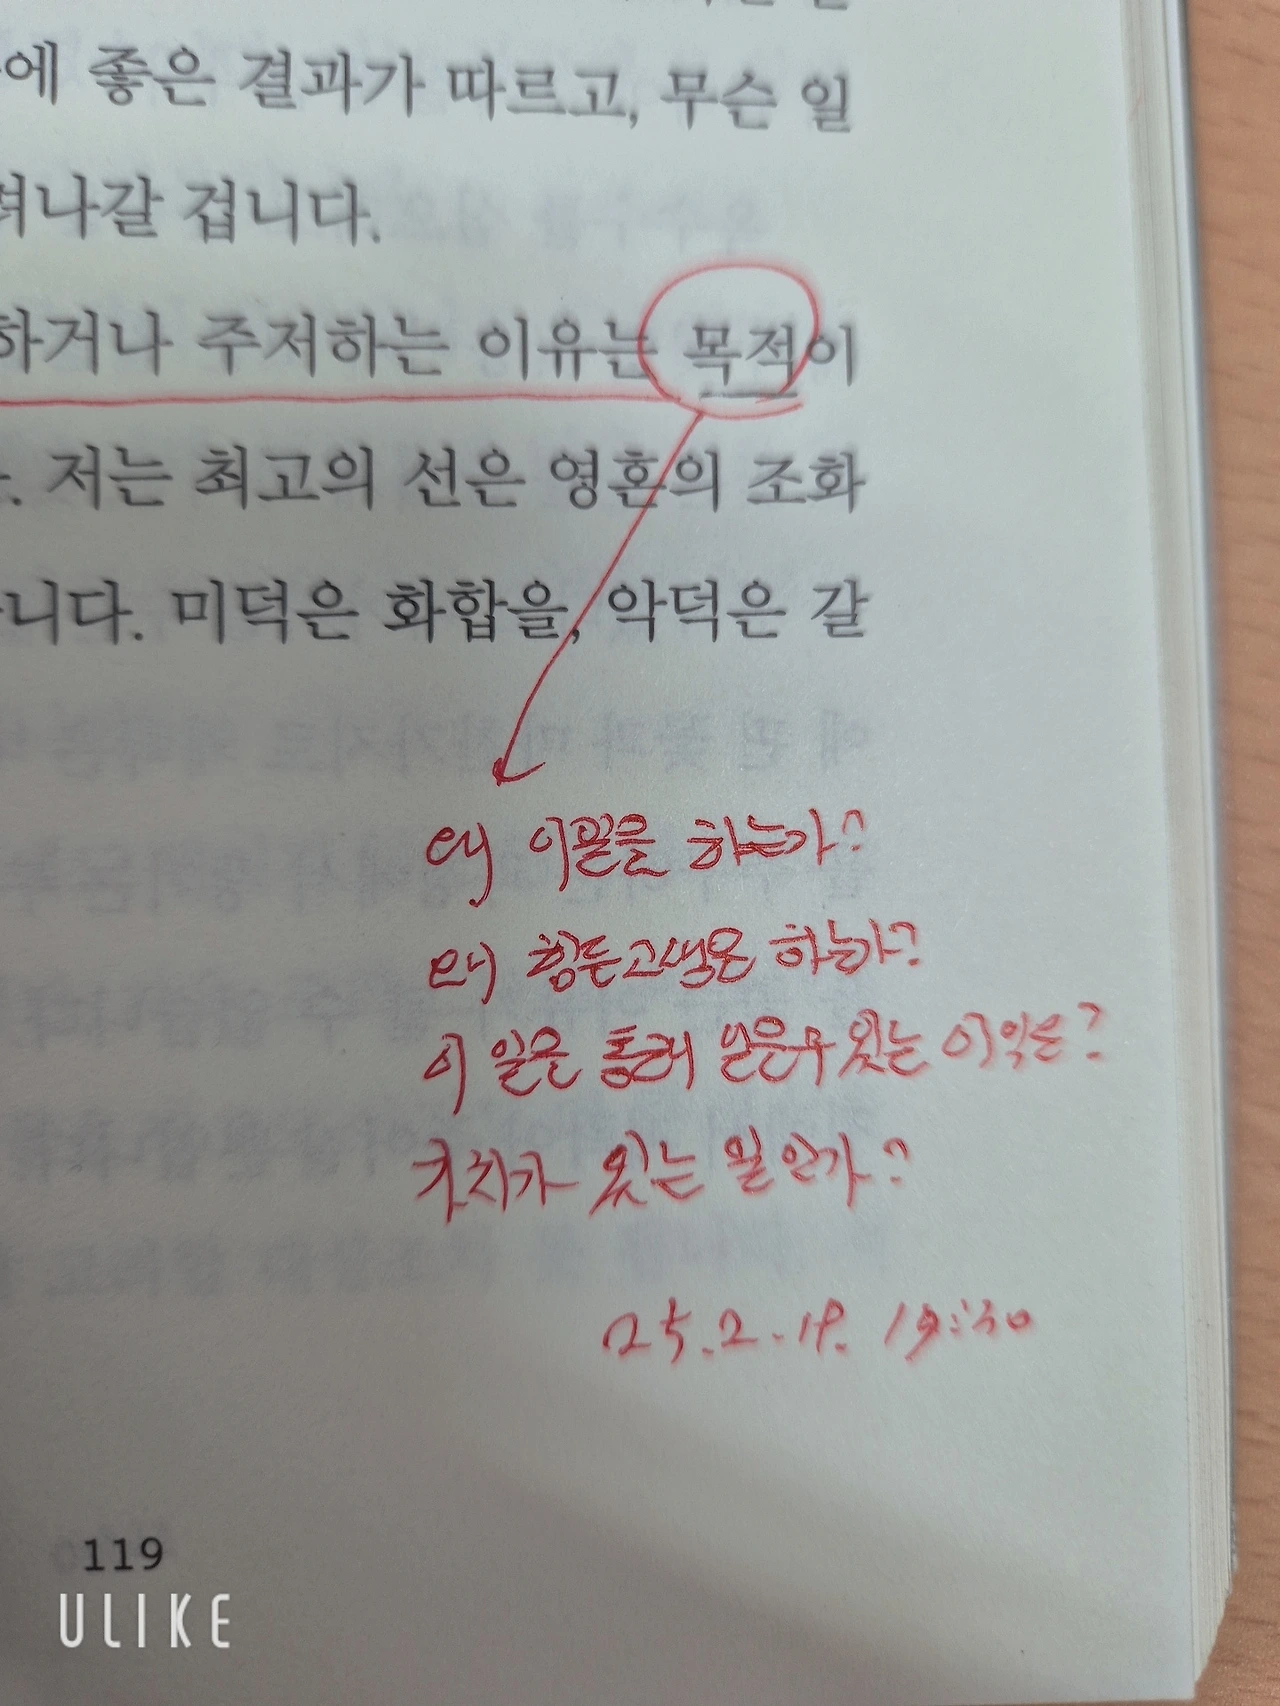 에 좋은 결과가 따르고, 무슨 일
려나갈 겁니다.
하거나 주저하는 이유는 목적이
. 저는 최고의 선은 영혼의 조화
니다. 미덕은 화합을, 악덕은 갈
왜 이꼴을 하는가?
왜 힘든 고생은 하는가?
이 일을 통해 얻을 수 있는 이익은?
가치가 있는 일인가?
25. 2. 19:30
119
ULIKE